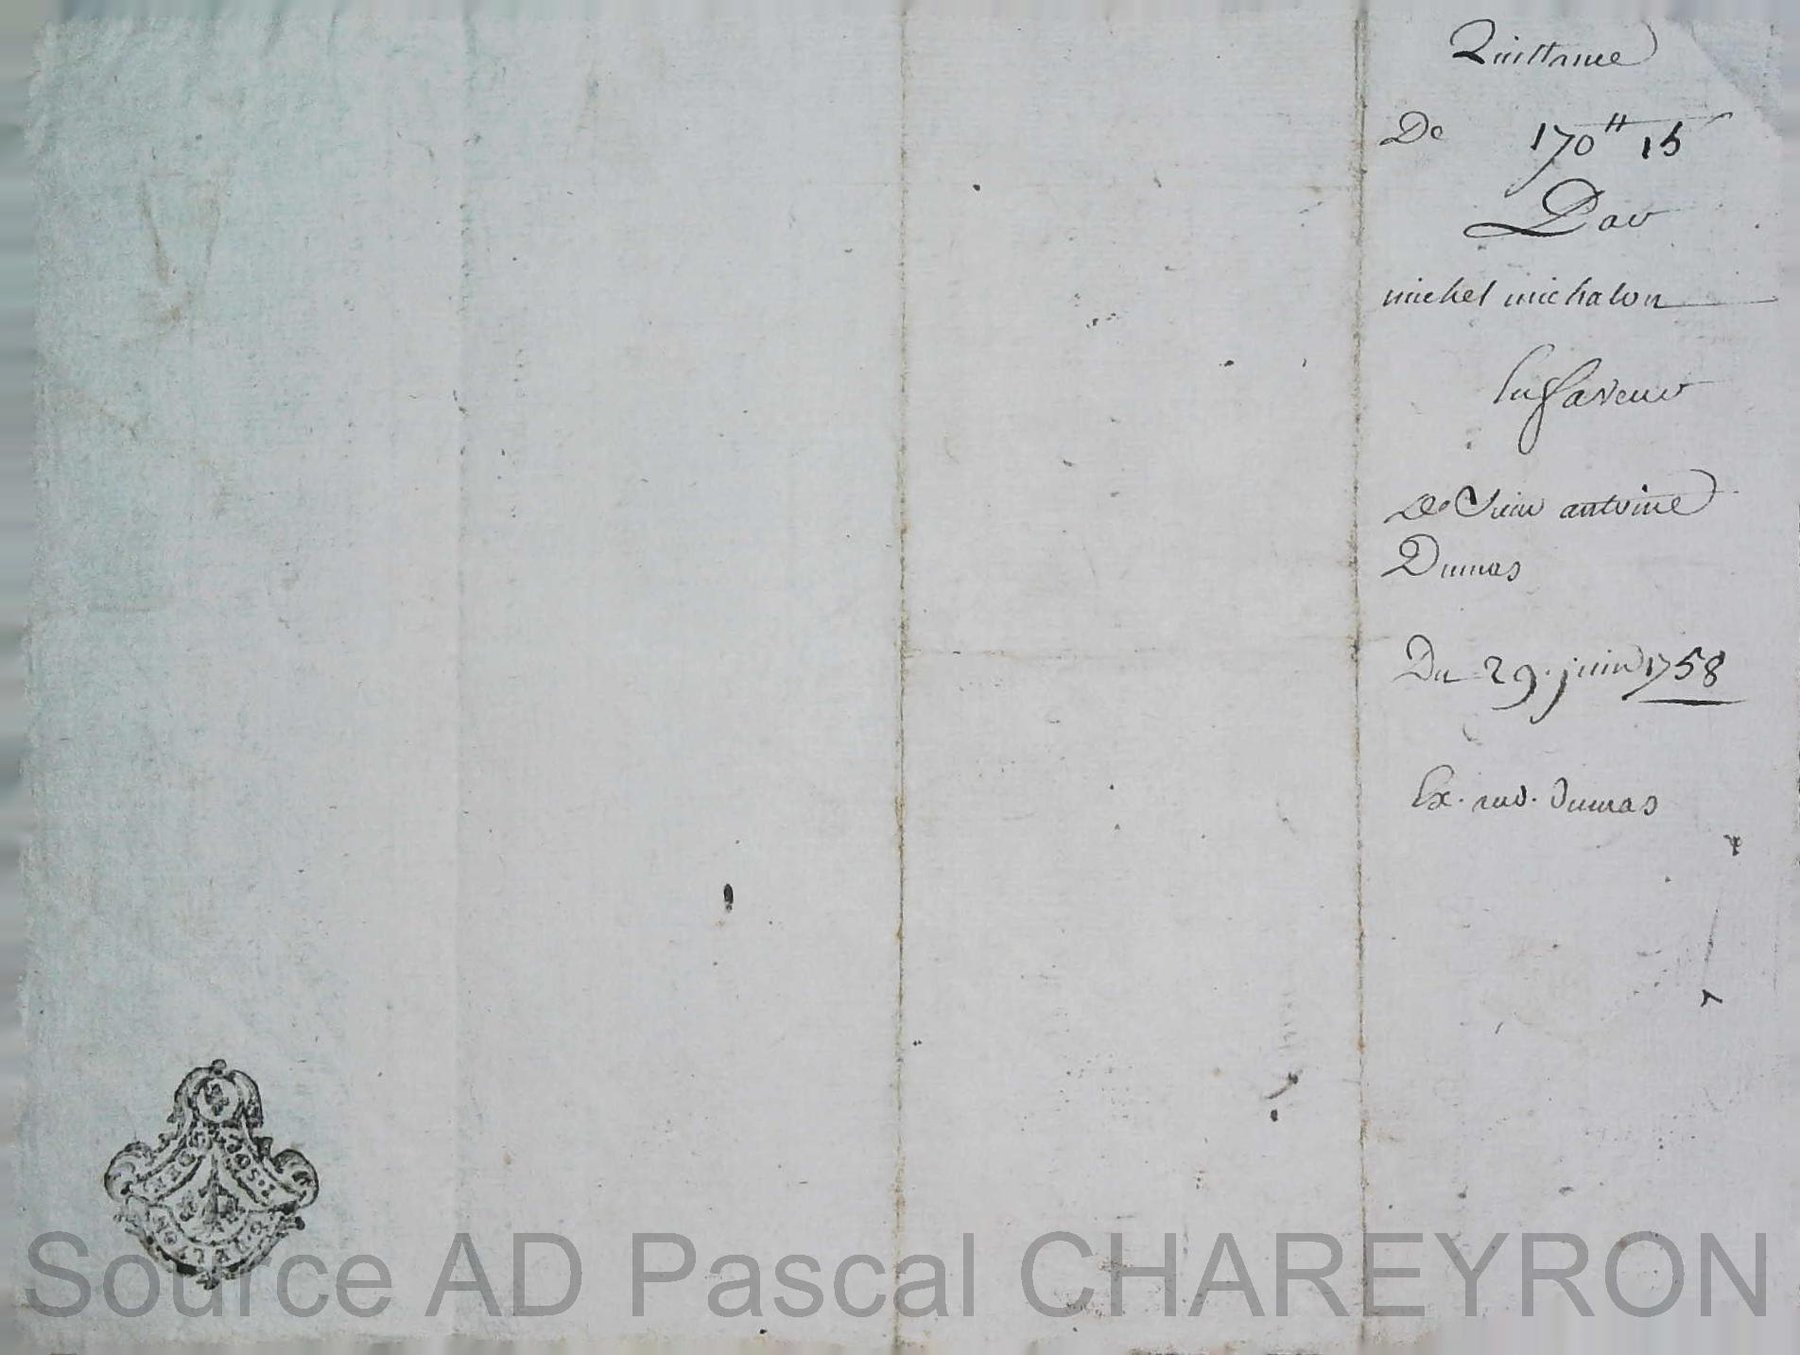 Quittance
De 170tt 15
Par
michel michalon
En faveur
de Sieur antoine
Dumas
Du 29. juin 1758
Ex. aud. Dumas
Source AD Pascal CHAREYRON